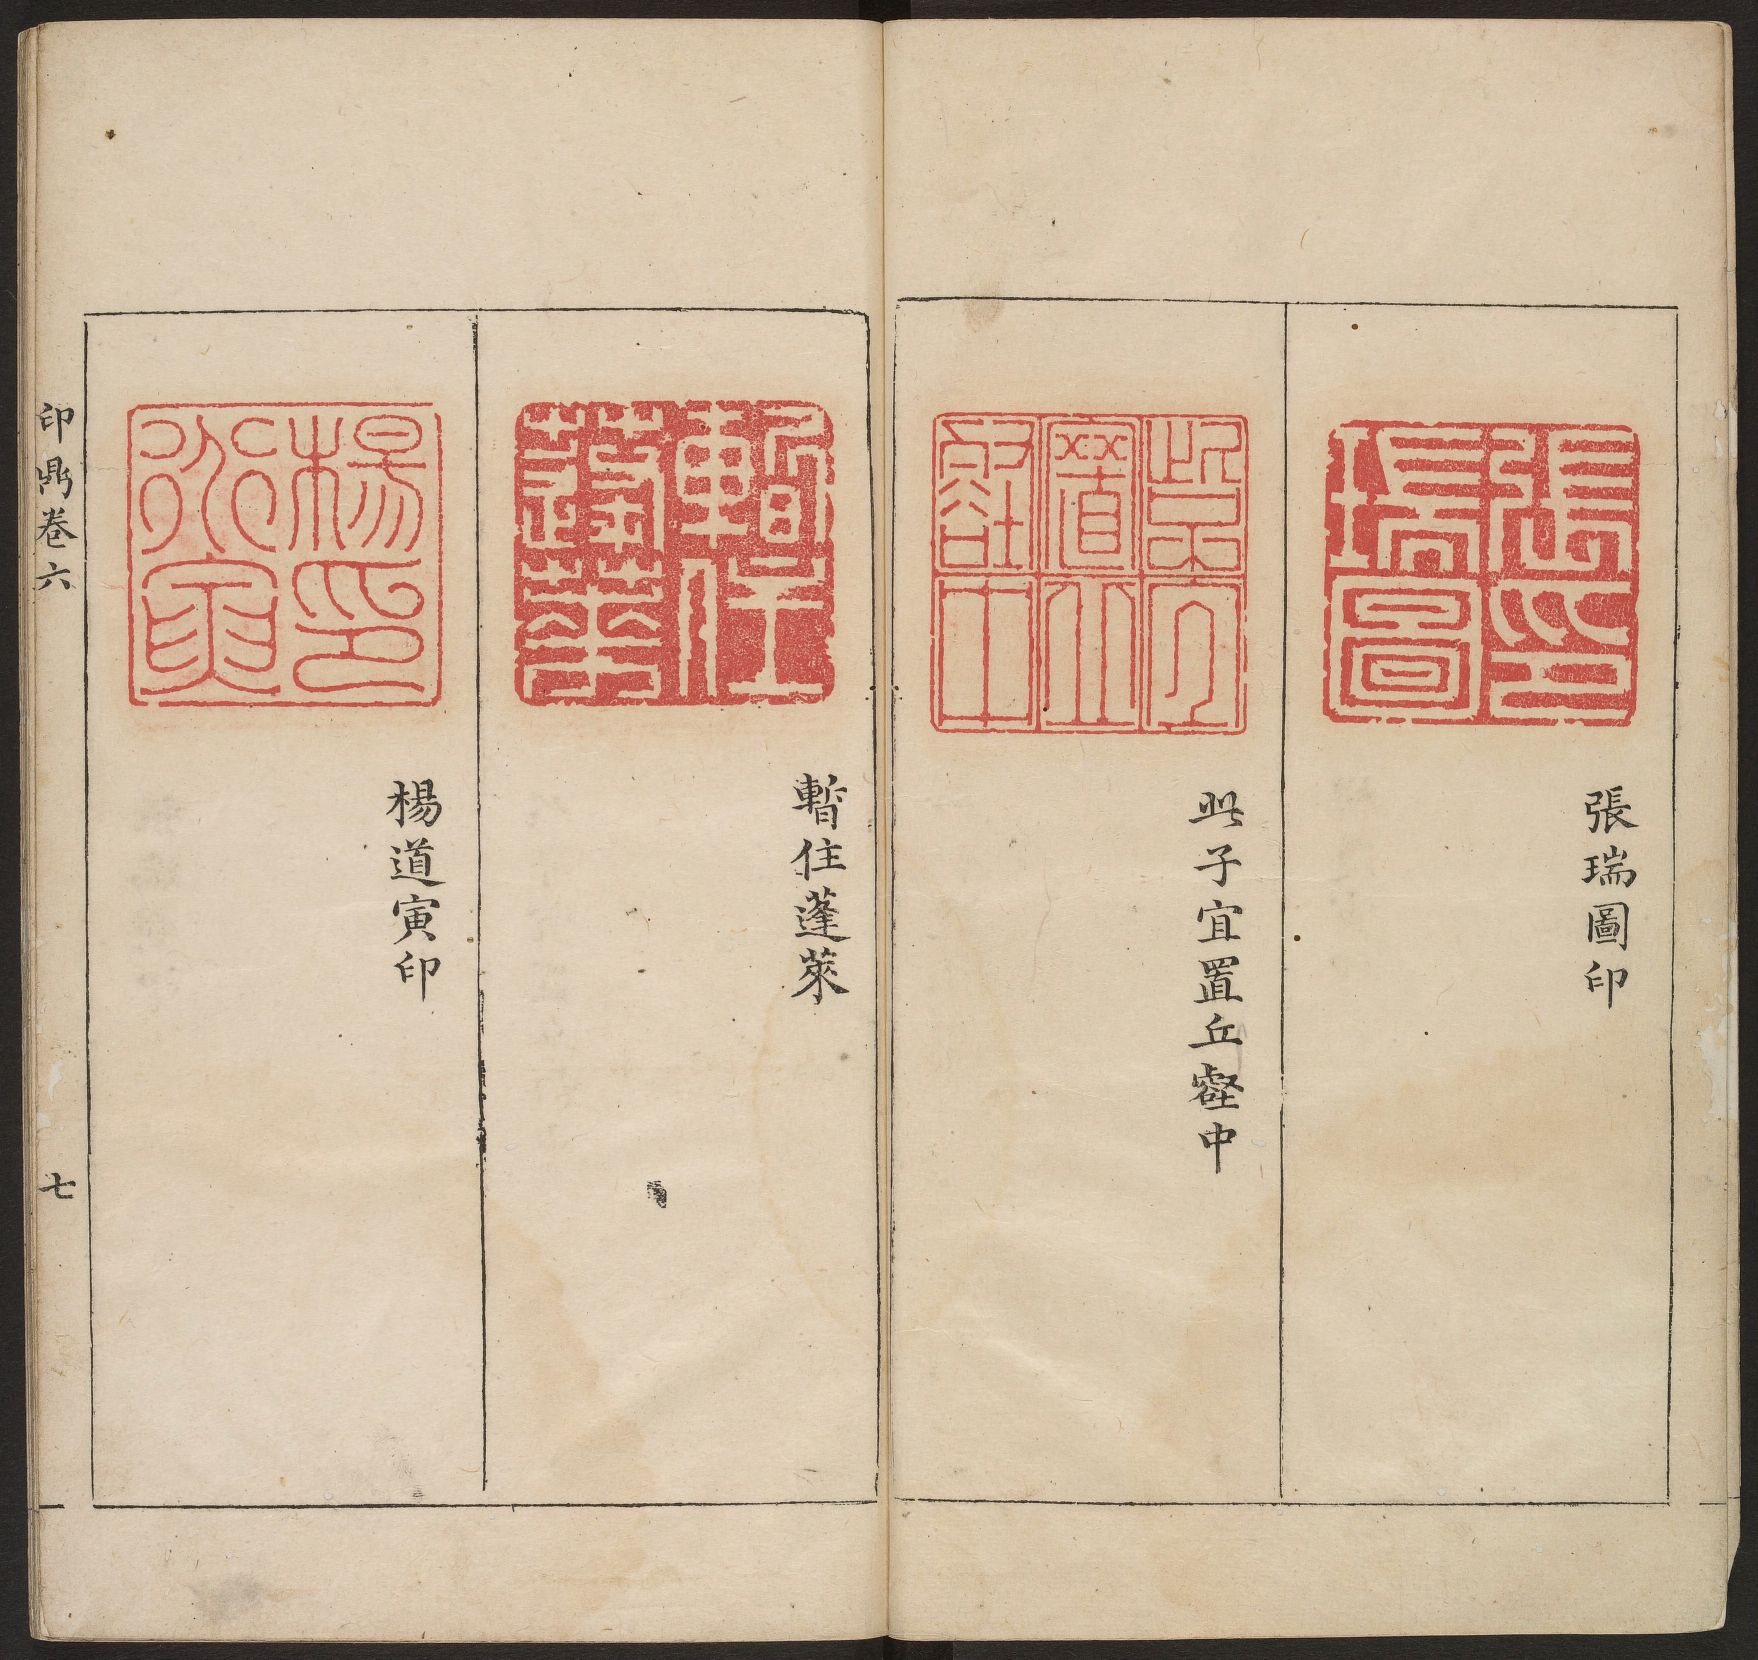 張瑞圖印
此子宜置丘壑中
暫住蓬萊
楊道寅印
印鼎卷六
七